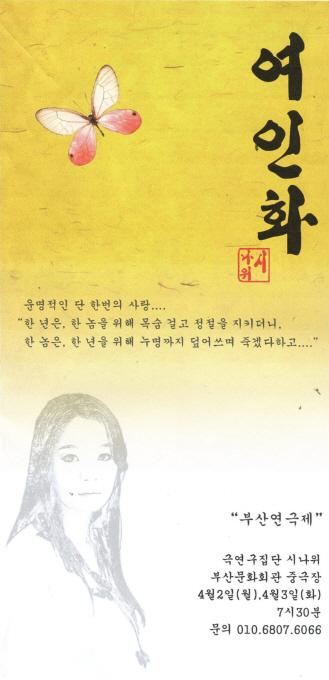 여인화
시
나위
운명적인 단 한번의 사랑....
“한 년은, 한 놈을 위해 목숨 걸고 정절을 지키더니,
한 놈은, 한 년을 위해 누명까지 덮어쓰며 죽겠다하고....”
“부산연극제”
극연구집단 시나위
부산문화회관 중극장
4월2일(월).4월3일(화)
7시30분
문의 010.6807.6066